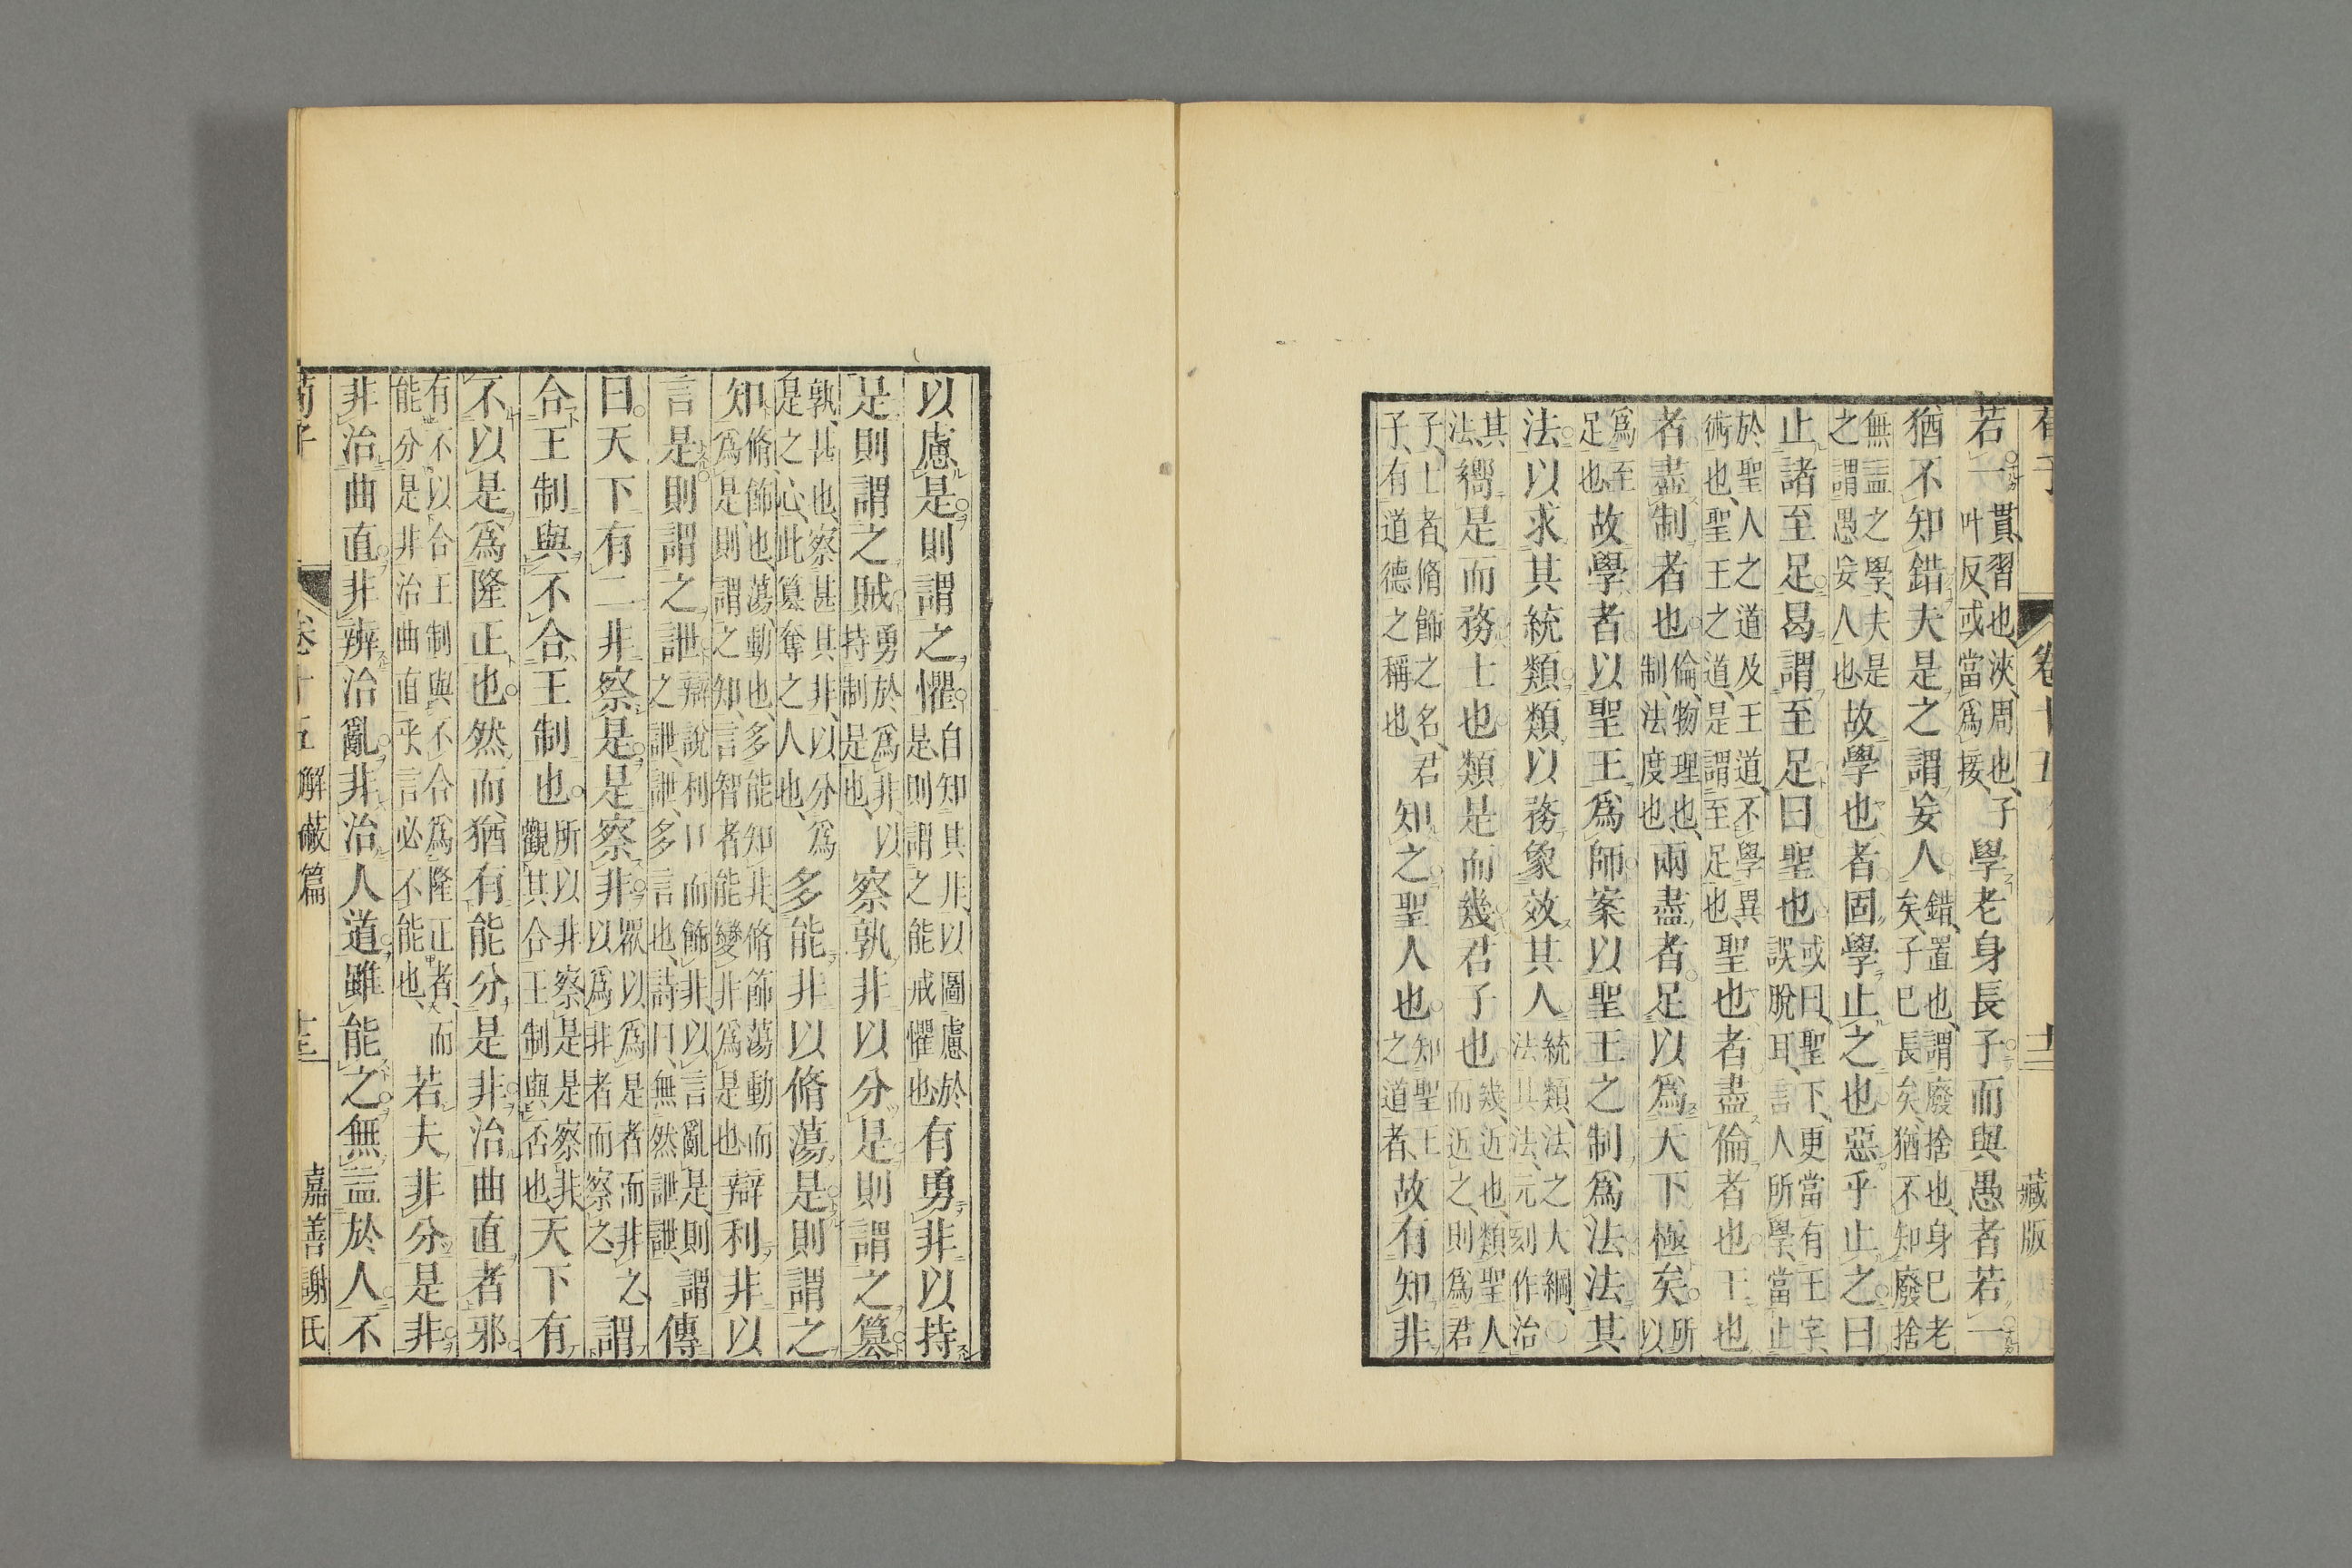 荀子 卷十五 十二 藏版
若一貫習也、浹、周也、子叶反、或當爲接、學老身長子而與愚者若一
猶不知錯夫是之謂妄人錯、置也、謂廢捨也、身已老矣、子已長矣、猶不知廢捨
無益之學、夫是之謂愚妄人也故學也者固學止之也惡乎止之曰
止諸至足曷謂至足曰聖也或曰、聖下、更當有王字、誤脫耳、言人所學、當止
於聖人之道及王道、不學異術也、聖王之道、是謂至足也、聖也者盡倫者也王也
者盡制者也倫、物理也、制、法度也、兩盡者足以爲天下極矣所以
爲至足也故學者以聖王爲師案以聖王之制爲法法其
法以求其統類類以務象效其人統類、法之大綱、○法其法、元刻作治
其法、嚮是而務士也類是而幾君子也幾、近也、類聖人而近之、則爲君
子、士者、脩飾之名、君子、有道德之稱也、知之聖人也知聖王之道者、故有知非
以慮是則謂之懼自知其非、以圖慮於是、則謂之能戒懼也有勇非以持
是則謂之賊勇於爲非、以持制是也、察孰非以分是則謂之篡
孰、甚也、察甚其非、以分爲是之心、此篡奪之人也、多能非以脩蕩是則謂之
知脩、飾也、蕩、動也、多能知非、脩飾蕩動而爲是、則謂之知、言智者能變非爲是也辯利非以
言是則謂之詍辯說利口而飾非、以言亂是、則謂之詍、詍、多言也、詩曰、無然詍詍、傳
曰天下有二非察是是察非衆以爲是者而非之、以爲非者而察之、謂
合王制與不合王制也所以非察是、是察非、觀其合王制與否也天下有
不以是爲隆正也然而猶有能分是非治曲直者邪
有不以合王制與不合爲隆正者、而能分是非治曲直乎、言必不能也、若夫非分是非
非治曲直非辨治亂非治人道雖能之無益於人不
荀子 卷十五 解蔽篇 十三 嘉善謝氏